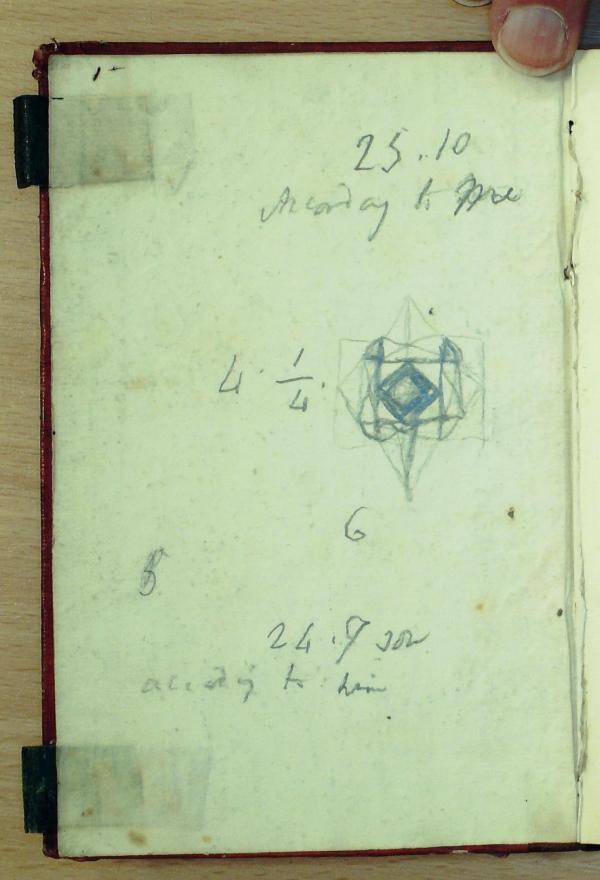 25.10
According to me
4 1/4
6
8
24.9
according to him